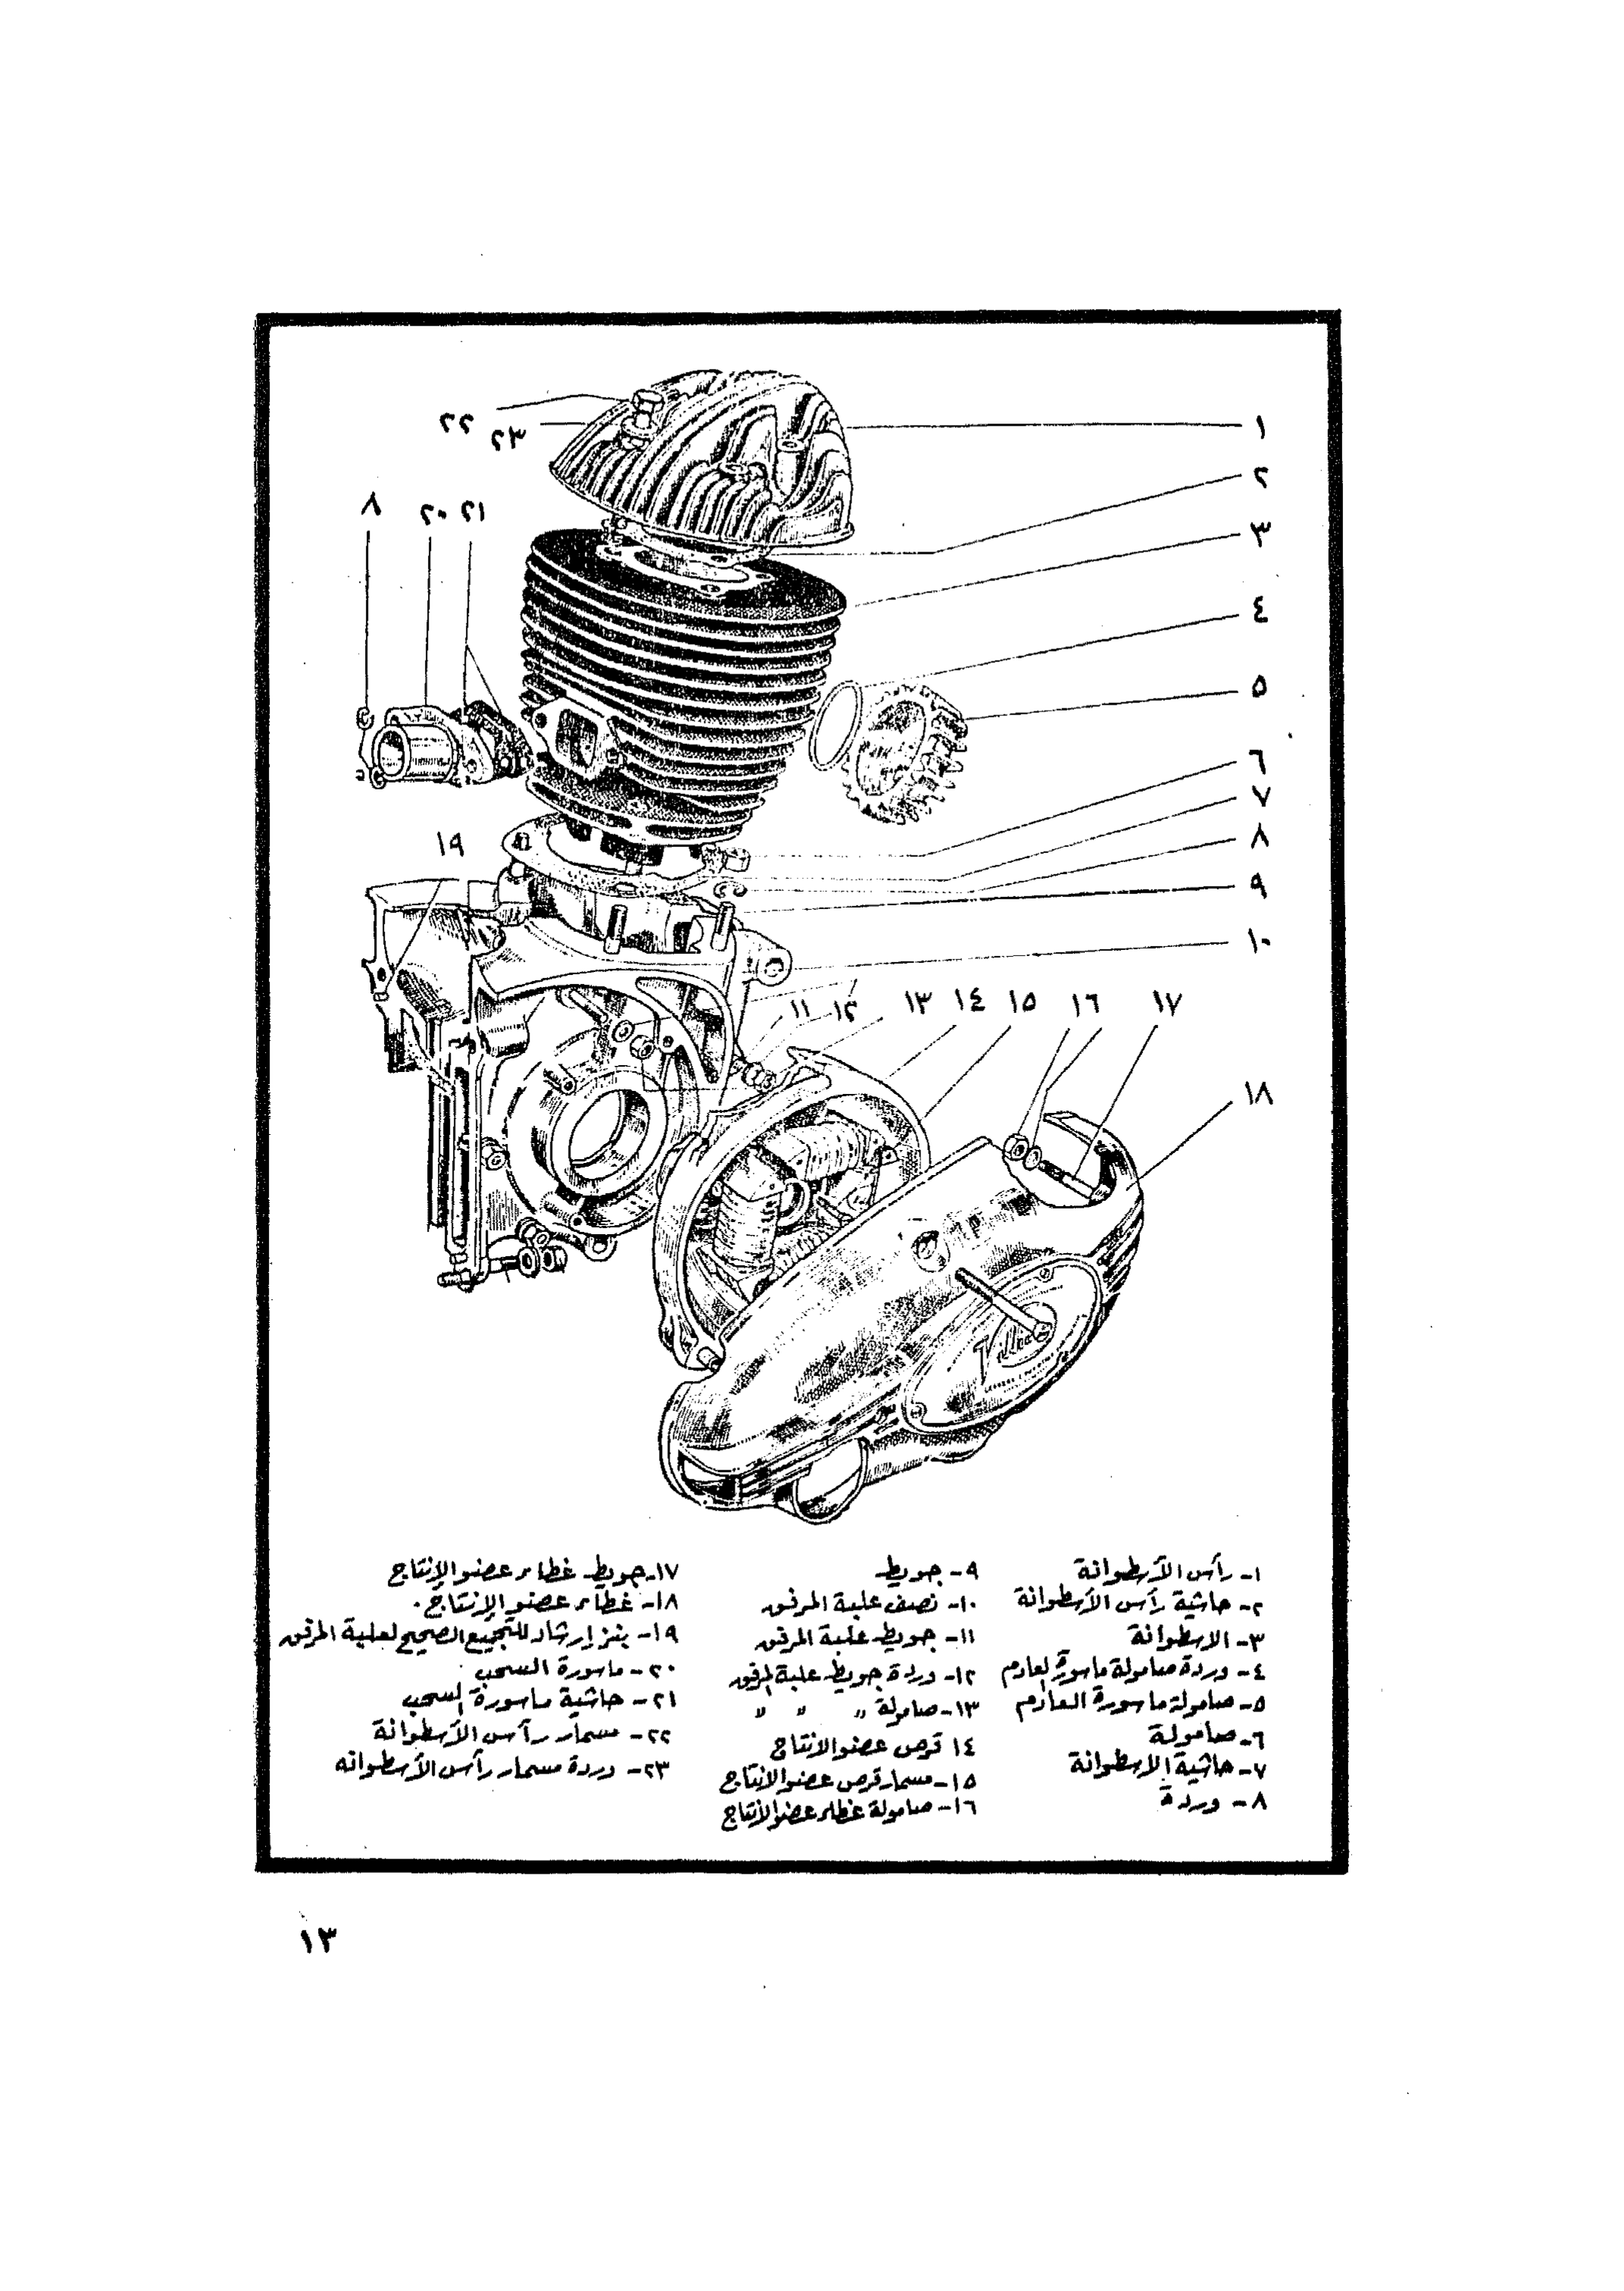 ٢٢
٢٣
١
٢
٨
٢٠
٢١
٣
٤
٥
٦
٧
٨
١٩
٩
١٠
١١
١٢
١٣
١٤
١٥
١٦
١٧
١٨
١- رأس الأسطوانة
٢- حاشية رأس الأسطوانة
٣- الاسطوانة
٤- وردة صامولة ماسورة العادم
٥- صامولة ماسورة العادم
٦- صامولة
٧- حاشية الاسطوانة
٨- وردة
٩- جويط
١٠- نصف علبة المرفق
١١- جويط علبة المرفق
١٢- وردة جويط علبة المرفق
١٣- صامولة " " "
١٤ قرص عضو الانتاج
١٥- مسمار قرص عضو الانتاج
١٦- صامولة غطاء عضو الأنتاج
١٧- جويط غطاء عضو الإنتاج
١٨- غطاء عضو الإنتاج.
١٩- بنز إرشاد للتجميع الصحيح لعلبة المرفق
٢٠- ماسورة السحب
٢١- حاشية ماسورة السحب
٢٢- مسمار رأس الأسطوانة
٢٣- وردة مسمار رأس الأسطوانه
١٣